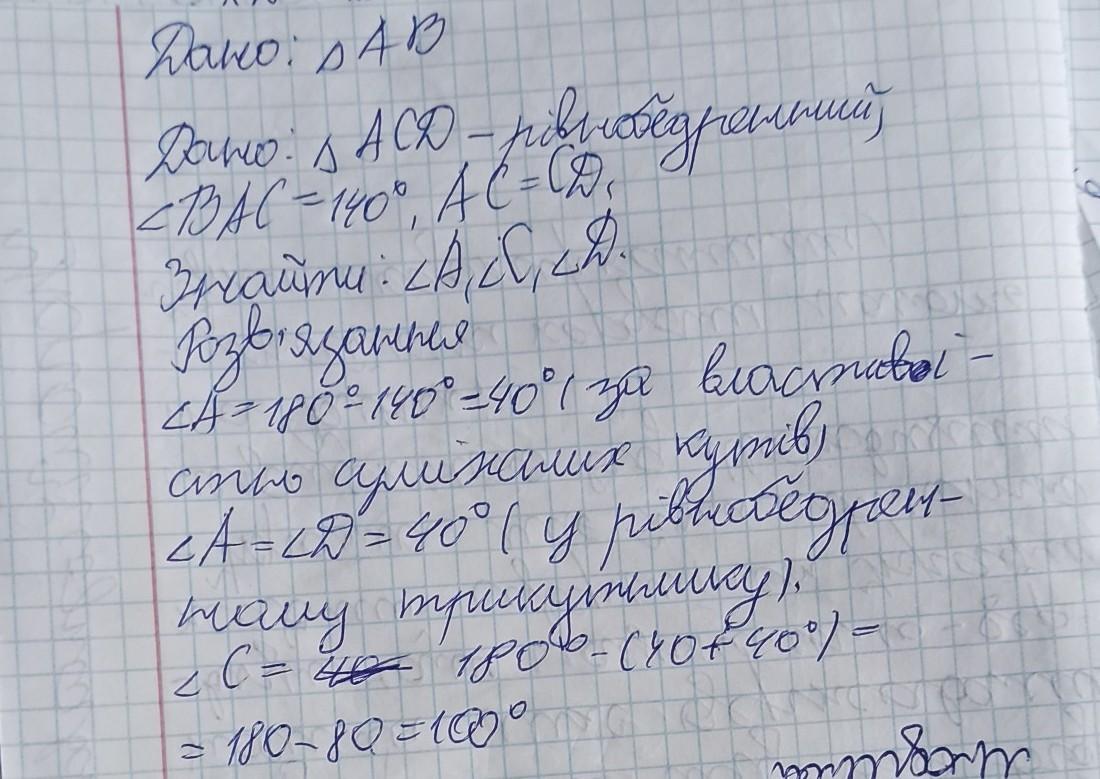 Дано: △ AB
Дано: △ ACD – рівнобедренний,
∠BAC = 140°, AC = CD.
Знайти: ∠A, ∠C, ∠D.
Розв'язання
∠A = 180° - 140° = 40° ( за властиві-
стю суміжних кутів)
∠A = ∠D = 40° ( у рівнобедрен-
ному трикутнику).
∠C = 180° - (40 + 40°) =
= 180 - 80 = 100°